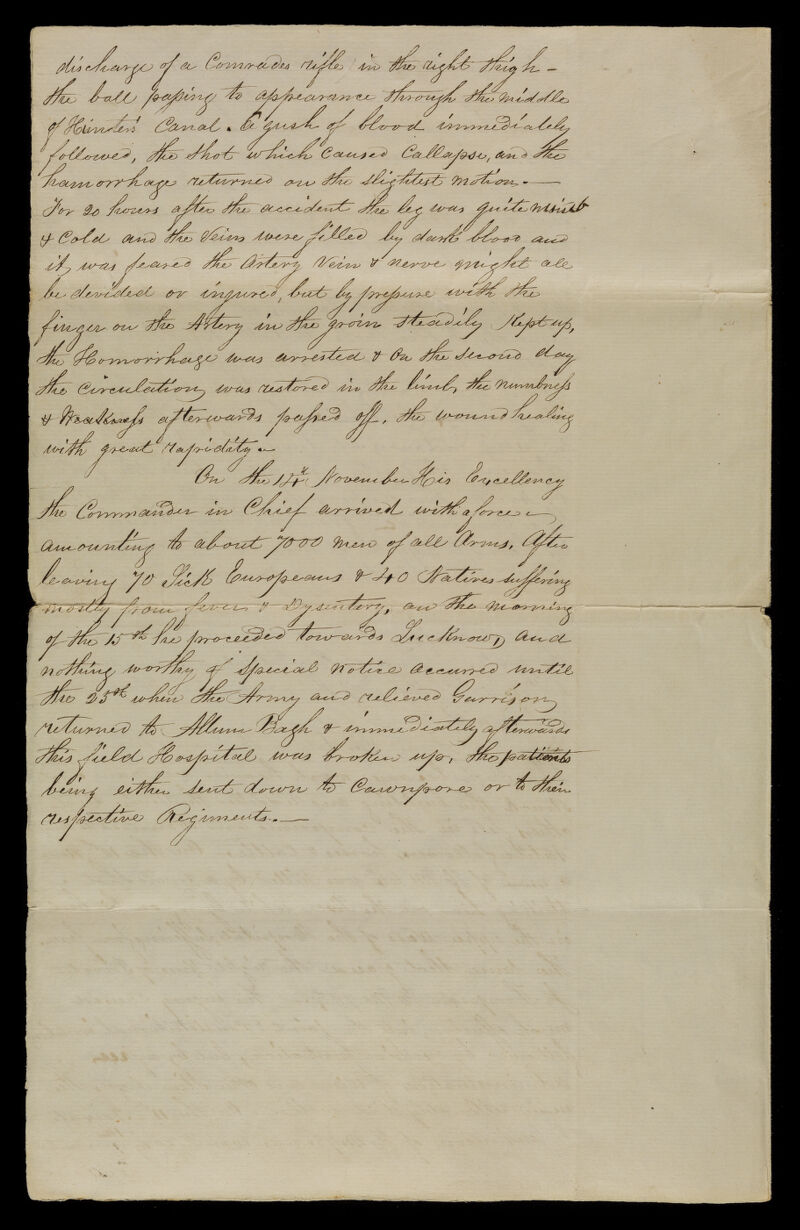 discharge of a Comrades rifle in the right thigh –
the ball passing to appearance through the middle
of Hunter's Canal. A gush of blood immediately
followed, the shot which caused Callapse, and the
hamorrhage returned on the slightest motion. —
For 20 hours after the accident the leg was quite numb
& Cold and the Veins were filled by dark blood and
it was feared the Artery Vein & nerve might all
be devided or injured, but by pressure with the
finger on the Artery in the groin steadily Kept up,
the Homorrhage was arrested & On the second day
the circulation was restored in the limb, the numbness
& Weakness afterwards passed off, the wound healing
with great rapidity. —
On the 14th November His Excellency
the Commander in Chief arrived with a force
amounting to about 7000 men of all Arms. After
leaving 70 Sick Europeans & 40 Natives suffering
mostly from fever & Dysentery, on the morning
of the 15th he proceeded towards Lucknow, and
nothing worthy of special notice accurred until
the 25th when the Army and relieved Garrison
returned to Allum Bagh & immediately afterwards
this field Hospital was broken up, the patients
being either sent down to Cawnpore or to their
respective Regiments. —